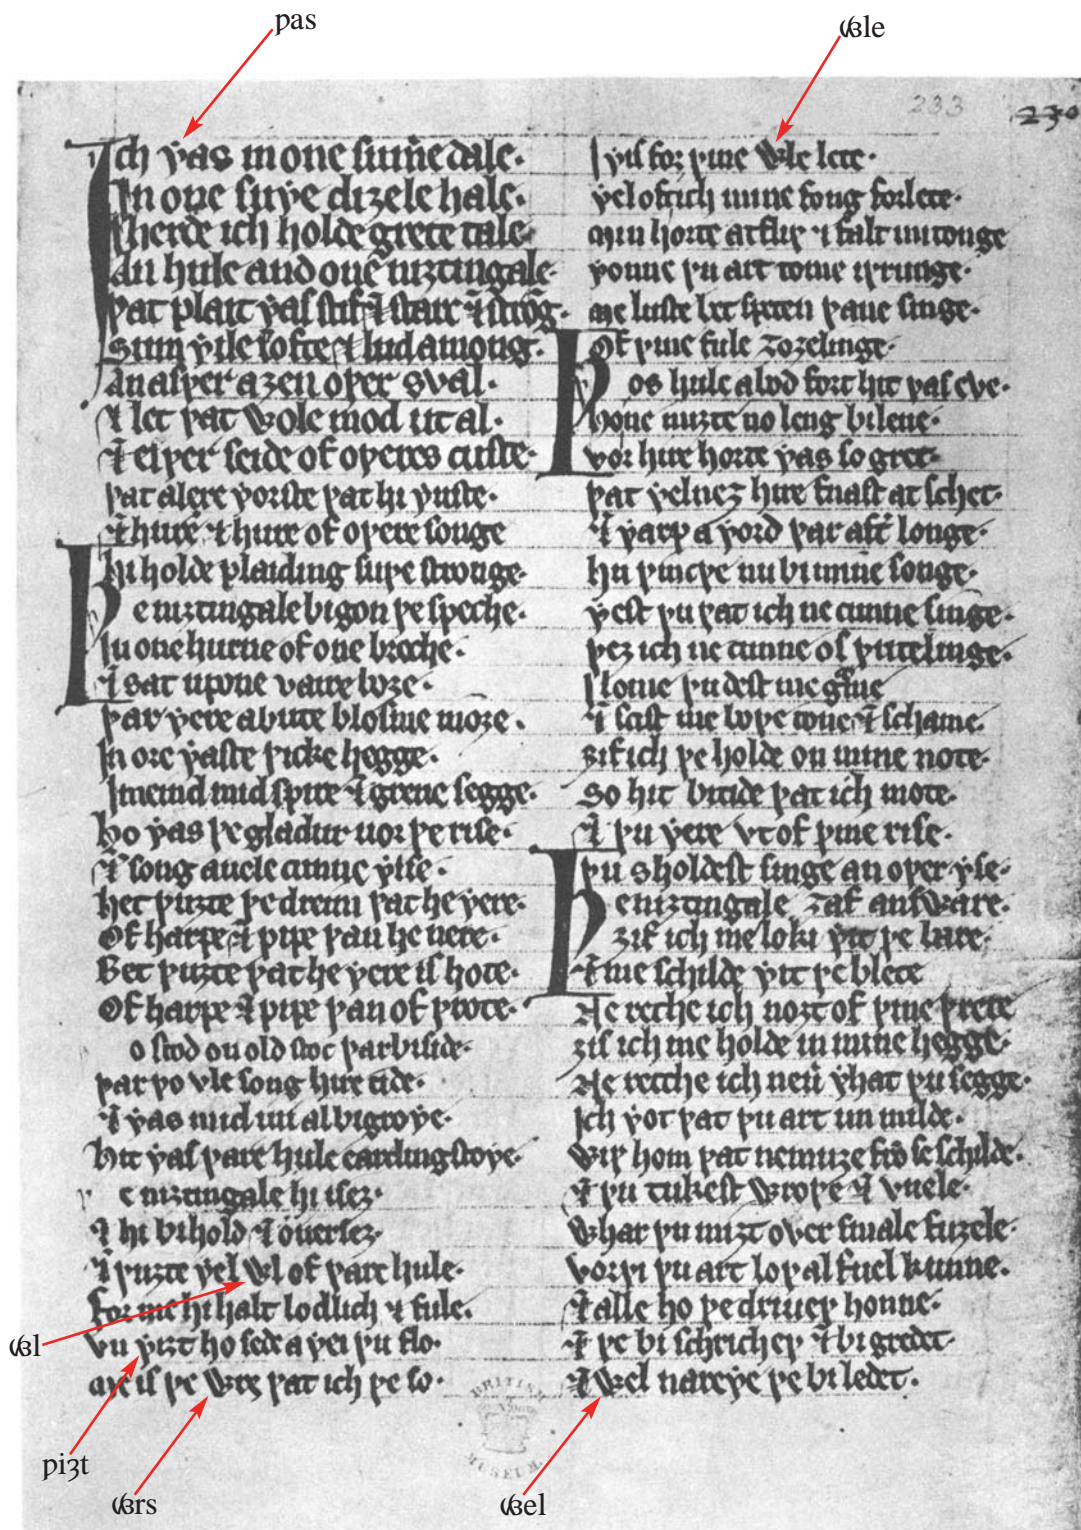 ƿas
ꟃle
233
230
Ich ƿas in one sume dale·
In one suþe diȝele hale·
Iherde ich holde grete tale·
An hule and one niȝtingale·
þat plait ƿas stif ⁊ starc ⁊ strōg·
Sum ƿile softe ⁊ lud among·
An aiþer aȝen oþer sval·
⁊ let þat ꟃole mod ut al·
⁊ eiþer seide of oþeres custe·
þat alere ƿorste þat hi ƿuste·
⁊ hure ⁊ hure of oþere songe
hi holde plaiding suþe stronge·
Þe niȝtingale bigon þe speche·
In one hurne of one breche·
⁊ sat upone vaire boȝe·
þar ƿere abute blosme inoȝe·
In ore ƿaste þicke hegge·
Imeind mid spire ⁊ grene segge·
ho ƿas þe gladur uor þe rise·
⁊ song auele cunne ƿise·
Het þuȝte þe dreim þat he ƿere·
Of harpe ⁊ pipe þan he nere·
Bet þuȝte þat he ƿere ishote·
Of harpe ⁊ pipe þan of þrote·
o stod on old stoc þar biside·
þar þo vle song hire tide·
⁊ ƿas mid iui al bigroƿe·
hit ƿas þare hule eardingstoƿe·
þ e niȝtingale hi iseȝ·
⁊ hi bihold ⁊ ouerseȝ·
⁊ þuȝte ƿel ꟃl of þare hule·
for me hi halt lodlich ⁊ fule·
vn ƿiȝt ho sede aƿei þu flo·
me is þe ꟃrs þat ich þe so·
Iƿis for þine ꟃle lete·
ƿel oft ich mine song forlete·
min horte atflip ⁊ falt mi tonge
ƿonne þu art tome iþrunge·
me luste bet speten þane singe·
Of þine fule ȝoȝelinge·
Þos hule abod fort hit ƿas eve·
ho ne miȝte no leng bileue·
vor hire horte ƿas so gret·
þat ƿel neȝ hire fnast at schet·
⁊ ƿarp a ƿord þar aft̄ longe·
hu þincþe nu bi mine songe·
ƿest þu þat ich ne cunne singe·
þeȝ ich ne cunne of ƿritelinge·
Ilome þu dest me gᵃme
⁊ seist me boþe tone ⁊ schame·
ȝif ich þe holde on mine uote·
So hit bitide þat ich mote·
⁊ þu ƿere vt of þine rise·
þu sholdest singe an oþer ƿse·
Þe niȝtingale ȝaf ansꟃare·
ȝif ich me loki ƿit þe bare·
⁊ me schilde ƿit þe blete
Ne recche ich noȝt of þine þrete
ȝif ich me holde in mine hegge·
Ne recche ich neū ƿhat þu segge·
Ich ƿot þat þu art unmilde·
ꟃiþ hom þat ne muȝe frō se schilde·
⁊ þu tukest ꟃroþe ⁊ vuele·
ꟃhar þu miȝt over smale fuȝele·
vorþi þu art loþ al fuel kunne·
⁊ alle ho þe driueþ honne·
⁊ þe bi schricheþ ⁊ bi gredet·
⁊ ꟃel narƿe þe bi ledet·
BRITISH
MUSEUM
ꟃl
ƿiȝt
ꟃrs
ꟃel